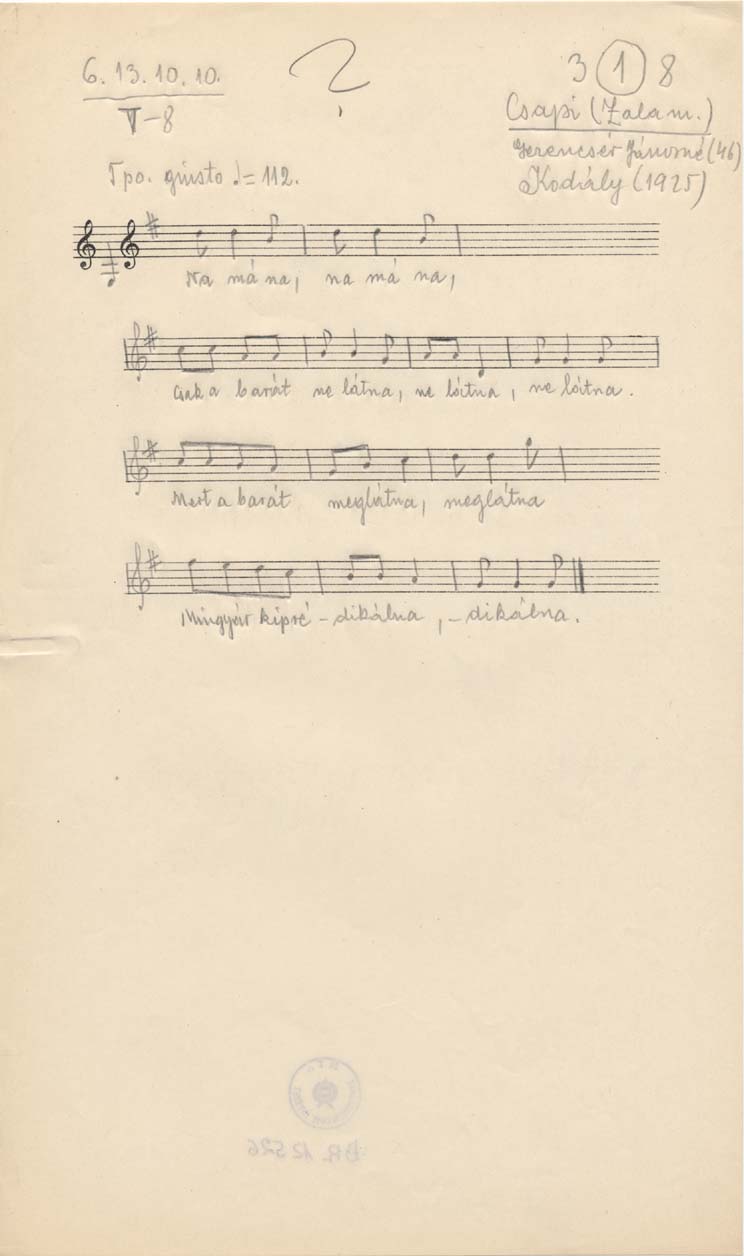 6. 13. 10. 10.
V-8
?
3 1 8
Csapi (Zala m.)
Gerencsér Jánosné (46)
Kodály (1925)
Tpo. giusto ♩= 112.
Na má na, na má na,
Csak a barát ne látna, ne látna, ne látna.
Mert a barát meglátna, meglátna
Mingyár kipré - dikálna, - dikálna.
BR. 12526